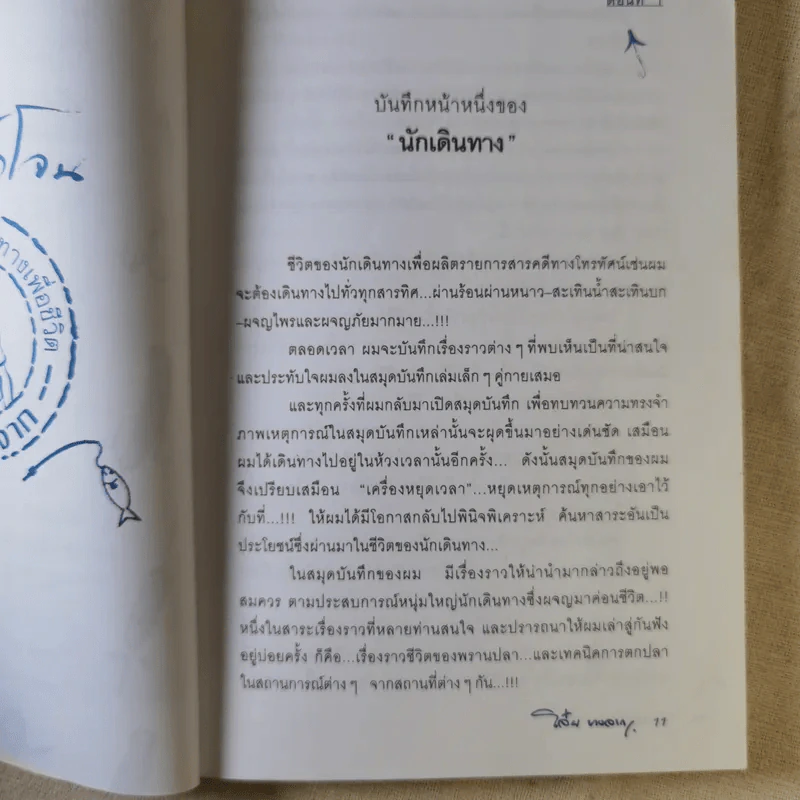 ตอนที่ 1
โจน
ทางเพื่อชีวิต
จาก
บันทึกหน้าหนึ่งของ
“นักเดินทาง”
ชีวิตของนักเดินทางเพื่อผลิตรายการสารคดีทางโทรทัศน์เช่นผม
จะต้องเดินทางไปทั่วทุกสารทิศ...ผ่านร้อนผ่านหนาว-สะเทินน้ำสะเทินบก
-ผจญไพรและผจญภัยมากมาย...!!!
ตลอดเวลา ผมจะบันทึกเรื่องราวต่าง ๆ ที่พบเห็นเป็นที่น่าสนใจ
และประทับใจผมลงในสมุดบันทึกเล่มเล็ก ๆ คู่กายเสมอ
และทุกครั้งที่ผมกลับมาเปิดสมุดบันทึก เพื่อทบทวนความทรงจำ
ภาพเหตุการณ์ในสมุดบันทึกเหล่านั้นจะผุดขึ้นมาอย่างเด่นชัด เสมือน
ผมได้เดินทางไปอยู่ในห้วงเวลานั้นอีกครั้ง... ดังนั้นสมุดบันทึกของผม
จึงเปรียบเสมือน “เครื่องหยุดเวลา”...หยุดเหตุการณ์ทุกอย่างเอาไว้
กับที่...!!! ให้ผมได้มีโอกาสกลับไปพินิจพิเคราะห์ ค้นหาสาระอันเป็น
ประโยชน์ซึ่งผ่านมาในชีวิตของนักเดินทาง...
ในสมุดบันทึกของผม มีเรื่องราวให้น่านำมากล่าวถึงอยู่พอ
สมควร ตามประสบการณ์หนุ่มใหญ่นักเดินทางซึ่งผจญมาค่อนชีวิต...!!
หนึ่งในสาระเรื่องราวที่หลายท่านสนใจ และปรารถนาให้ผมเล่าสู่กันฟัง
อยู่บ่อยครั้ง ก็คือ...เรื่องราวชีวิตของพรานปลา...และเทคนิคการตกปลา
ในสถานการณ์ต่าง ๆ จากสถานที่ต่าง ๆ กัน...!!!
11